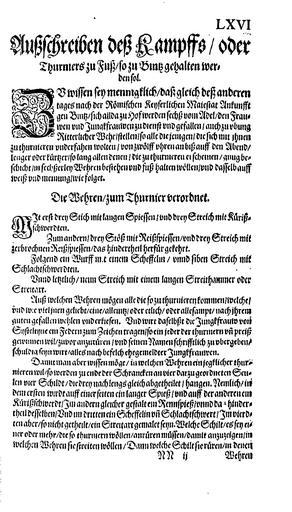 LXVI
Außschreiben deß Kampffs/ oder
Thurniers zu Fuß/ so zu Bintz gehalten wer-
den sol.
ZU wissen sey menngklich/ daß gleich deß anderen
tages nach der Römischen Keyserlichen Maiestat Ankunfft
gen Bintz/ sich allda zu Hof werden sechs vom Adel/ den Frau-
wen und Jungkfrauwen zu dienst und gefallen/ auch zu übung
Ritterlicher Wehr/ einstellen/ so alle die jenigen/ die sich mit ihnen
zu thurnieren understehen wolten/ von zwölff uhren an biß auff den Abend/
lenger oder kürtzer/ so lang allen denen/ die zu thurnieren erscheinen/ gnug be-
schicht/ in sechserley Wehren bestehen und fuß halten wöllen/ und dasselb auff
weiß und meinung/ wie folget.
Die Wehren/ zum Thurnier verordnet.
MIt erst drey Stich mit langen Spiessen/ und drey Streich mit Küriß-
schwerdten.
Zum andern/ drey Stöß mit Reißspiessen/ und drey Streich mit
zerbrochnen Reißspiessen/ das hindertheil herfür gekehrt.
Folgend ein Wurff mit einem Scheffelin/ und siben Streich mit
Schlachtschwerdten.
Unnd letzlich/ neun Streich mit einem langen Streithammer oder
Streitaxt.
Auß welchen Wehren mögen alle die so zu thurnieren kommen/ welche/
und wie viel jnen geliebt/ eine/ allein/ oder etlich/ oder alle sampt/ nach ihrem
guten gefallen wehlen und erkiesen.
gewonnen wil/ zuvor anzurüren/ und seinen Namen schrifftlich zu übergeben/
schuldig seyn/ wie alles nach befelch ehrgemelter Jungkfrauwen.
Damit man aber wissen möge/ in welchen Wehren ein jegklicher thur-
nieren wil/ so werden zu ende der Schrancken an vier dar zu geordneten Seu-
len vier Schilt/ die drey nach lengs gleich abgetheilet/ hangen. Nemlich/ in
dem ersten wirdt auff einer seiten ein langer Spieß/ und auff der anderen ein
Kürißschwerdt/ Im andern gleicher gestalt ein Rennspieß/ unnd das hinder-
theil desselben/ Und im dritten ein Scheffelin und Schlachtschwert/ Im vierd-
ten aber/ so nicht getheilt/ ein Streitaxt gemalet seyn. Welche Schilt/ es sey ei-
ner oder mehr/ die so thurniern wöllen/ anrüren müssen/ damit anzuzeigen/ in
welchen Wehren sie streiten wöllen/ Dann welche Schilt sie rüren/ in denen
NN ij
Wehren